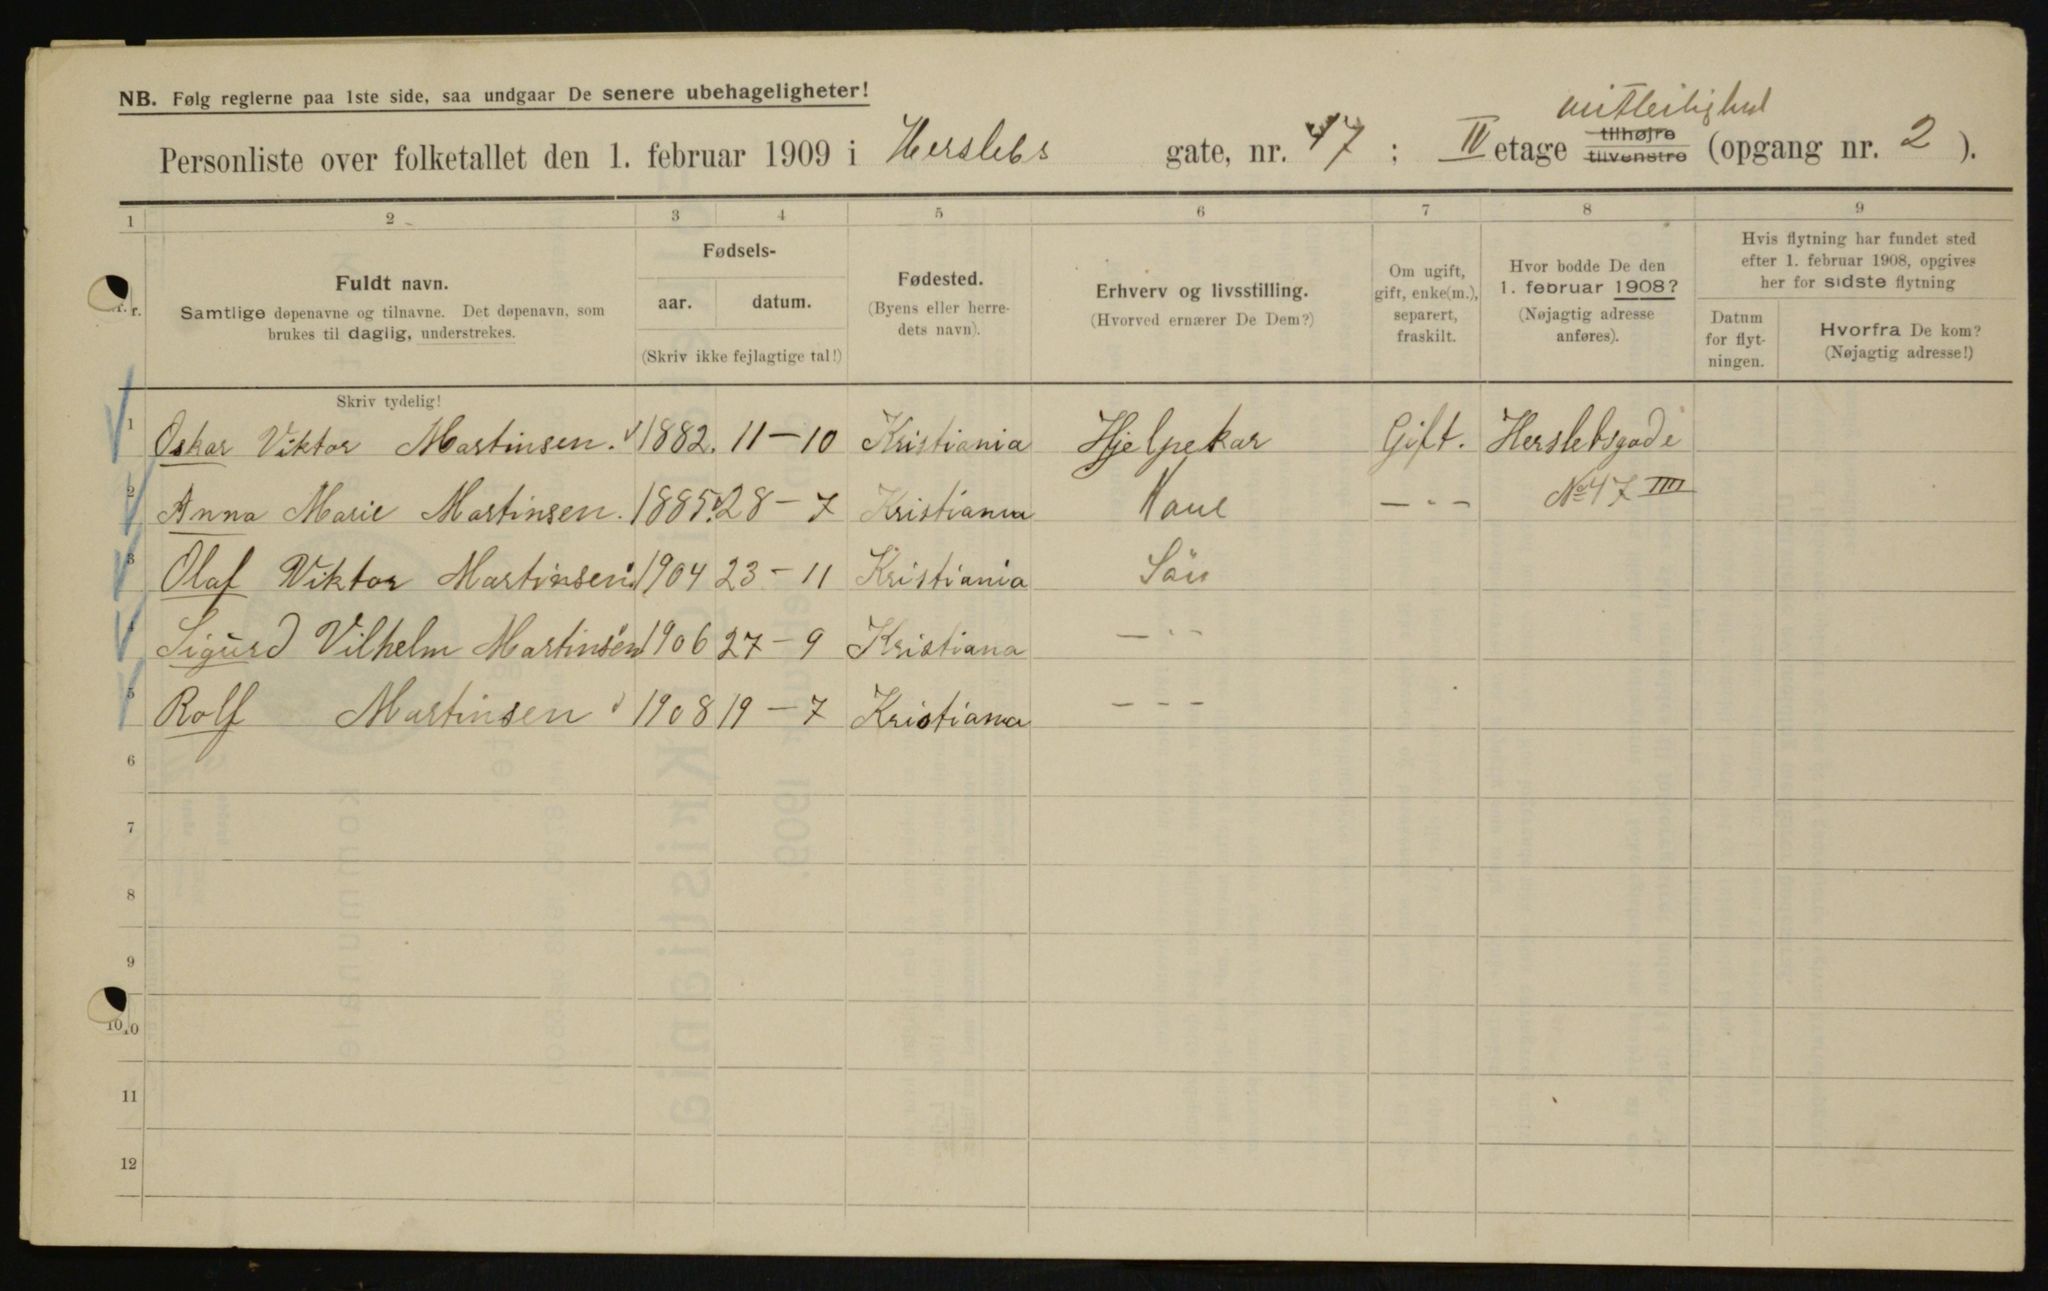 NB. Følg reglerne paa 1ste side, saa undgaar De senere ubehageligheter!
mitleilighed
Personliste over folketallet den 1. februar 1909 i Herslebs gate, nr. 47; IV etage tilhøjre tilvenstre (opgang nr. 2).
1 2 3 4 5 6 7 8 9
Fuldt navn.
Samtlige døpenavne og tilnavne. Det døpenavn, som
brukes til daglig, understrekes.
Fødsels-
aar. datum.
(Skriv ikke fejlagtige tal!)
Fødested.
(Byens eller herre-
dets navn).
Erhverv og livsstilling.
(Hvorved ernærer De Dem?)
Om ugift,
gift, enke(m.),
separert,
fraskilt.
Hvor bodde De den
1. februar 1908?
(Nøjagtig adresse
anføres).
Hvis flytning har fundet sted
efter 1. februar 1908, opgives
her for sidste flytning
Datum
for flyt-
ningen.
Hvorfra De kom?
(Nøjagtig adresse!)
Skriv tydelig!
1 Oskar Viktor Martinsen. 1882. 11-10 Kristiania Hjelpekar Gift. Herslebsgade
2 Anna Marie Martinsen. 1885. 28-7 Kristiania - - - No 47 IIII
3 Olaf Viktor Martinsen 1904 23-11 Kristiania Sön
4 Sigurd Vilhelm Martinsen 1906 27-9 Kristiana - - -
5 Rolf Martinsen 1908 19-7 Kristiana - - -
6
7
8
9
10
11
12